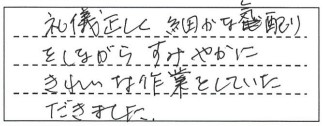 礼儀正しく 細かな気配り
をしながら すみやかに
きれいな作業をしていた
だきました。